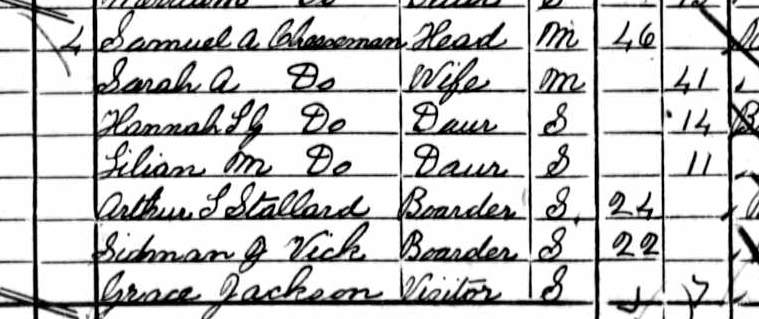 4 Samuel A Cheeseman Head M 46
Sarah A Do Wife M 41
Hannah L G Do Daur S 14
Lilian M Do Daur S 11
Arthur S Stallard Boarder S 24
Sidman J Vick Boarder S 22
Grace Jackson Visitor S 7